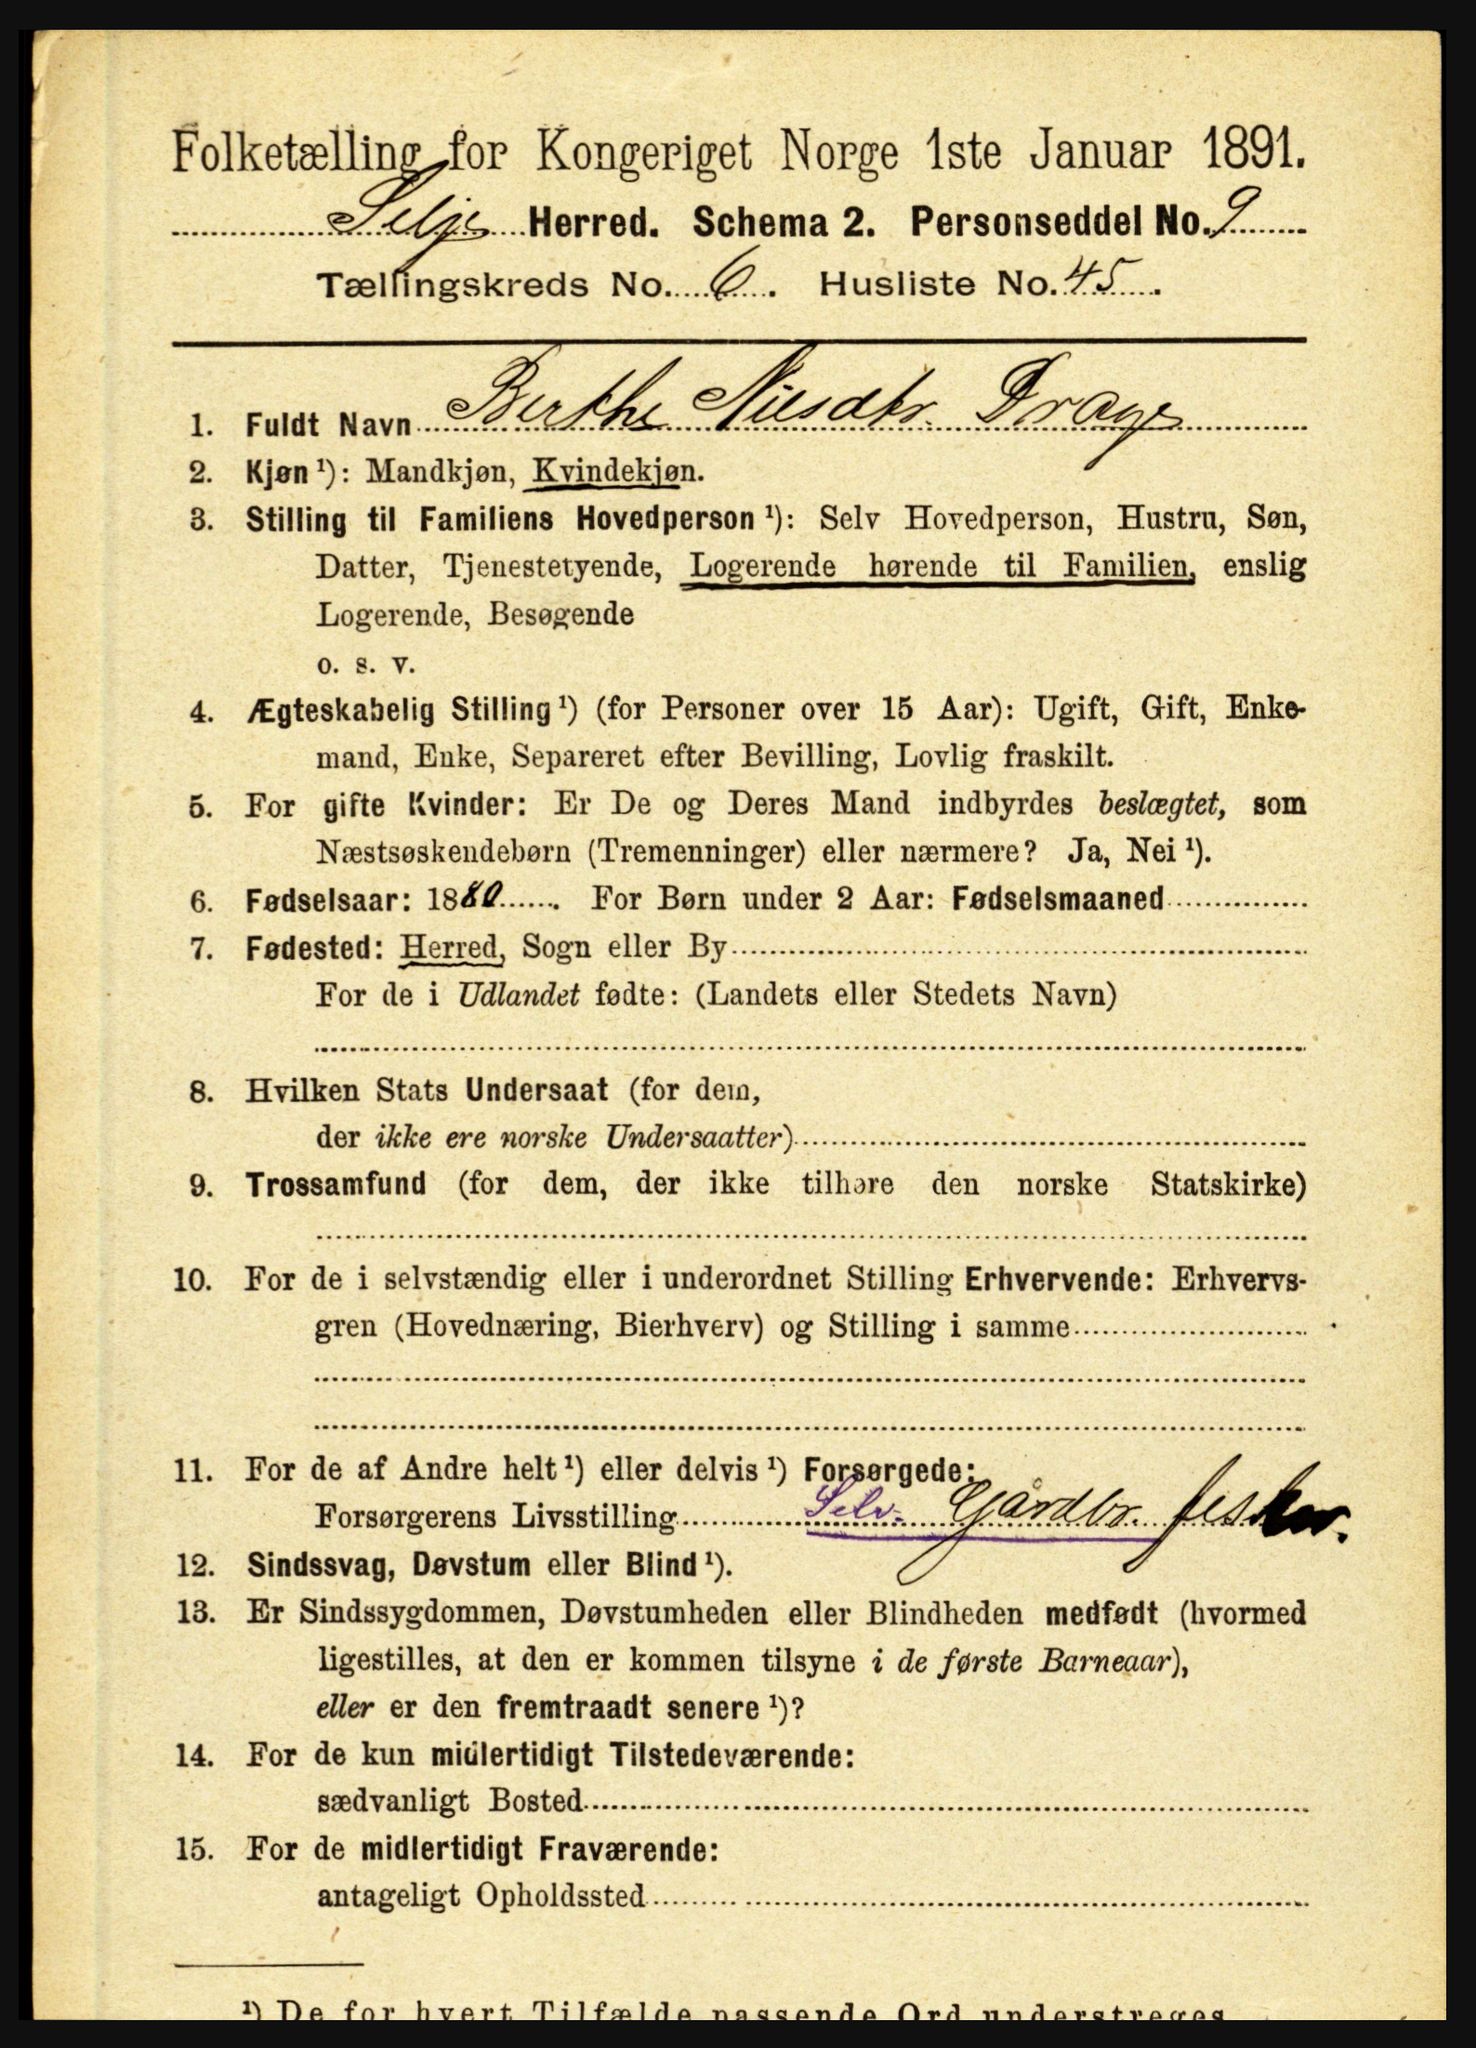 Folketælling for Kongeriget Norge 1ste Januar 1891.
Selje Herred. Schema 2. Personseddel No. 9
Tællingskreds No. 6. Husliste No. 45.
1. Fuldt Navn Berthe Nilsdtr. Drage
2. Kjøn ¹): Mandkjøn, Kvindekjøn.
3. Stilling til Familiens Hovedperson ¹): Selv Hovedperson, Hustru, Søn,
Datter, Tjenestetyende, Logerende hørende til Familien, enslig
Logerende, Besøgende
o. s. v.
4. Ægteskabelig Stilling ¹) (for Personer over 15 Aar): Ugift, Gift, Enke-
mand, Enke, Separeret efter Bevilling, Lovlig fraskilt.
5. For gifte Kvinder: Er De og Deres Mand indbyrdes beslægtet, som
Næstsøskendebørn (Tremenninger) eller nærmere? Ja, Nei ¹).
6. Fødselsaar: 1880. For Børn under 2 Aar: Fødselsmaaned
7. Fødested: Herred, Sogn eller By
For de i Udlandet fødte: (Landets eller Stedets Navn)
8. Hvilken Stats Undersaat (for dem,
der ikke ere norske Undersaatter)
9. Trossamfund (for dem, der ikke tilhøre den norske Statskirke)
10. For de i selvstændig eller i underordnet Stilling Erhvervende: Erhvervs-
gren (Hovednæring, Bierhverv) og Stilling i samme
11. For de af Andre helt ¹) eller delvis ¹) Forsørgede:
Forsørgerens Livsstilling Selv. Gårdbr. fisker.
12. Sindssvag, Døvstum eller Blind ¹).
13. Er Sindssygdommen, Døvstumheden eller Blindheden medfødt (hvormed
ligestilles, at den er kommen tilsyne i de første Barneaar),
eller er den fremtraadt senere ¹)?
14. For de kun midlertidigt Tilstedeværende:
sædvanligt Bosted
15. For de midlertidigt Fraværende:
antageligt Opholdssted
¹) De for hvert Tilfælde passende Ord understreges.